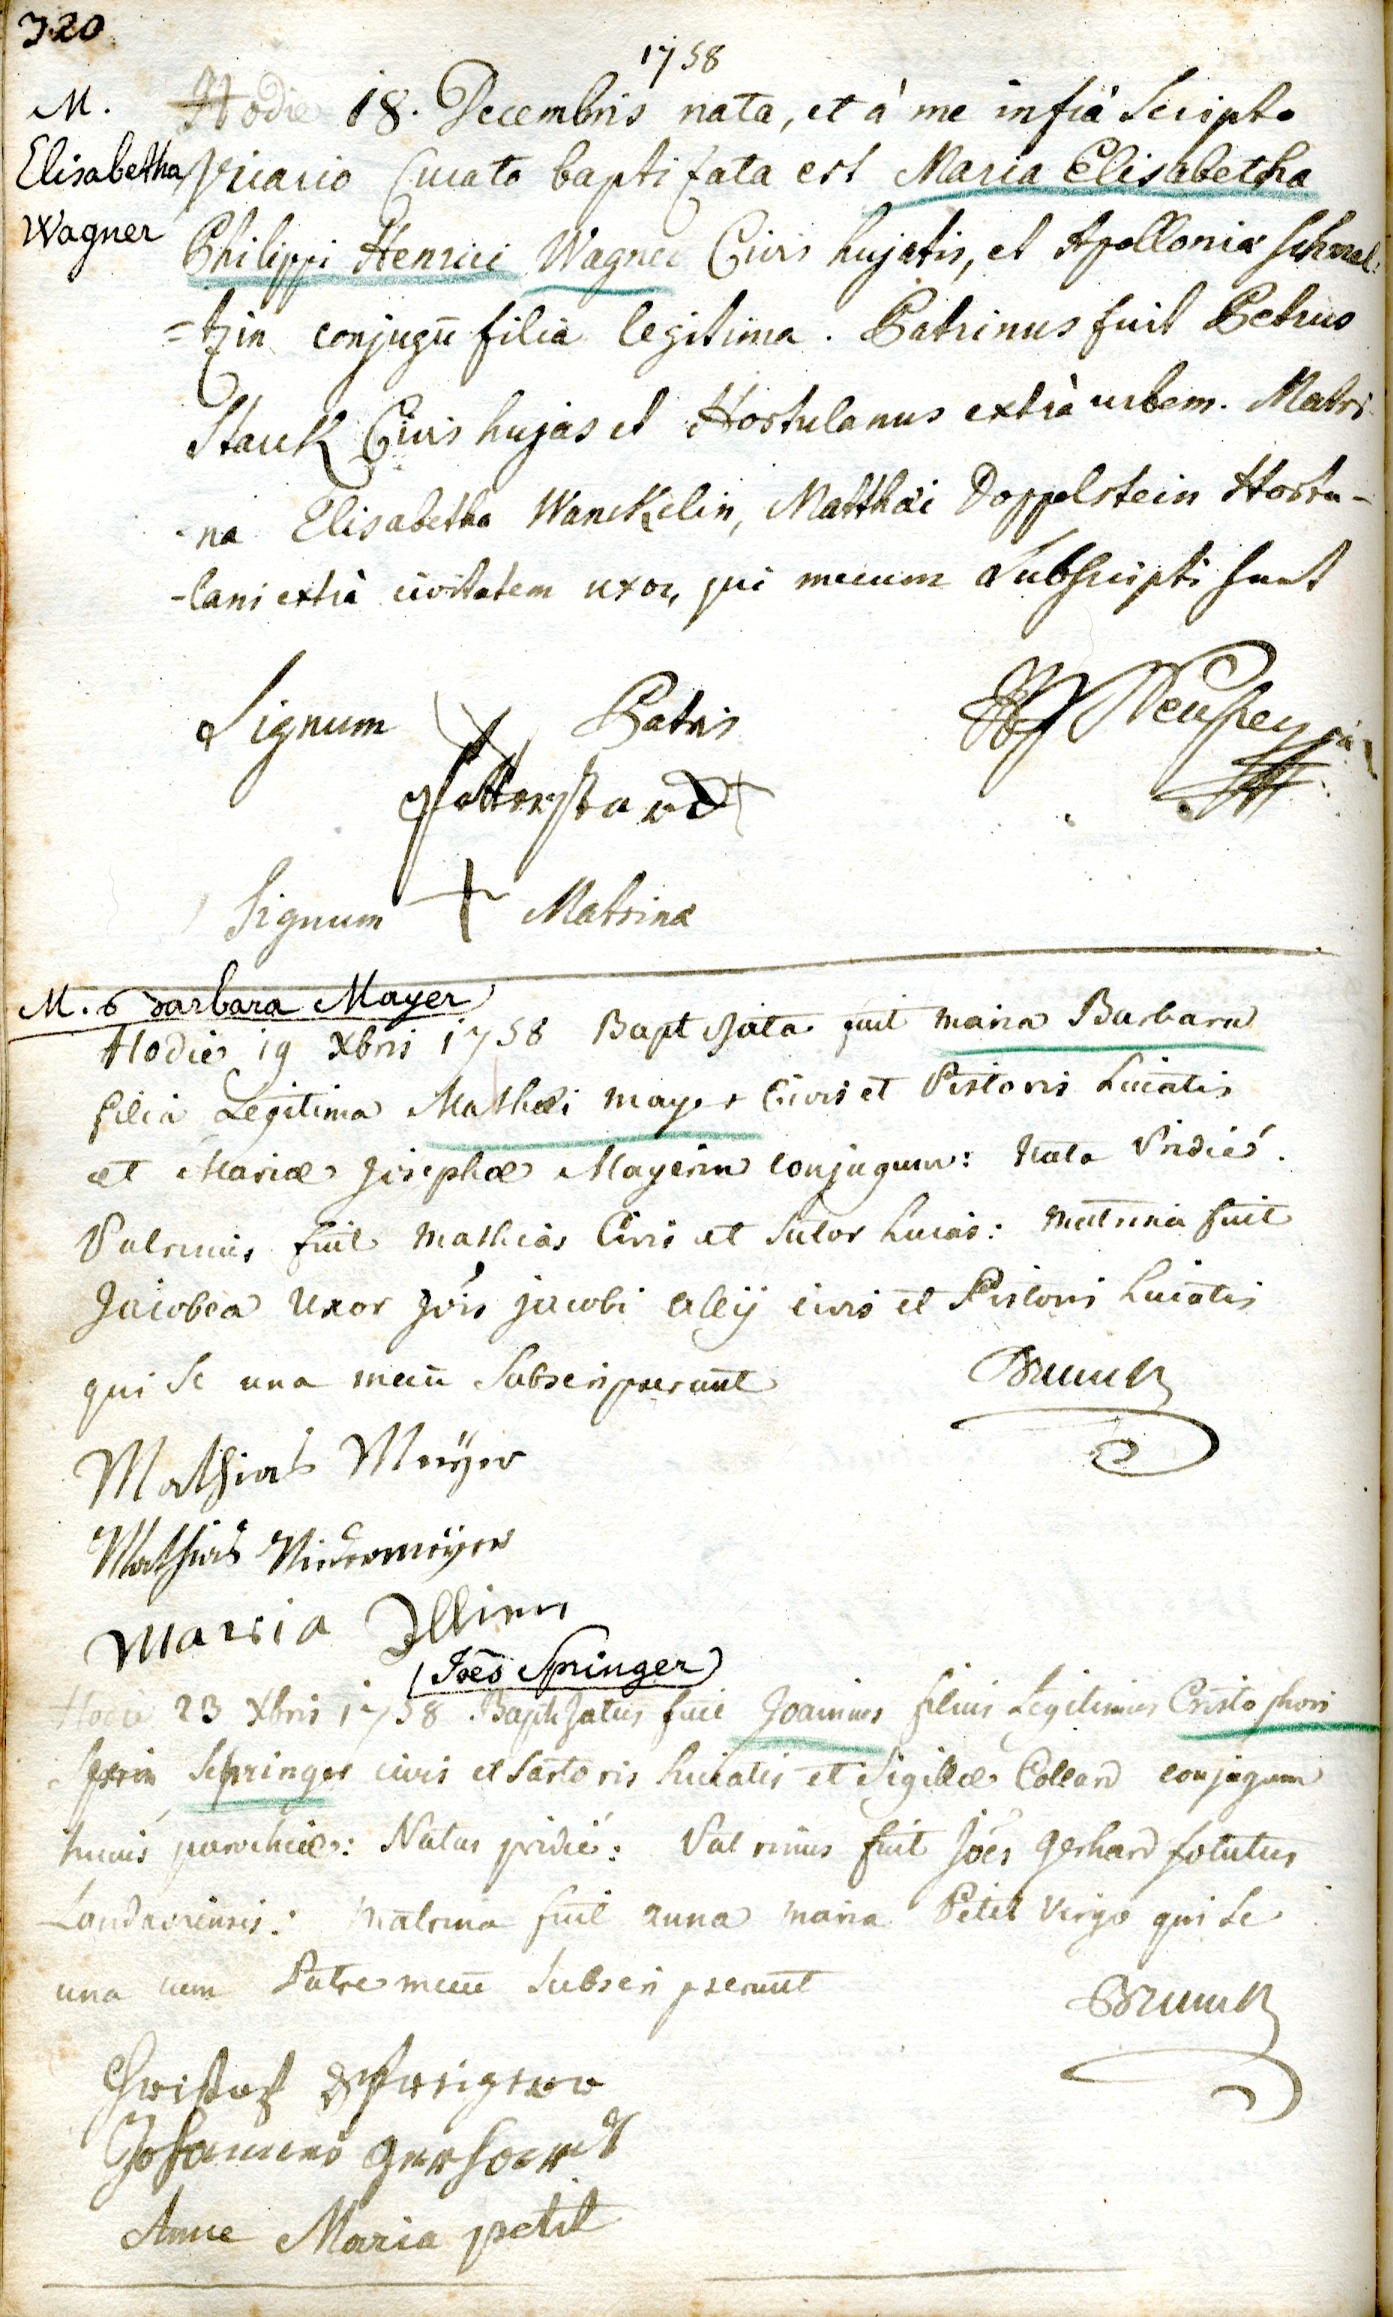 320
1758
M.
Elisabetha
Wagner
Hodie 18. Decembris nata, et à me infrà Scripto
Vicario Curato baptizata est Maria Elisabetha
Philippi Henrici Wagner Civis hujatis, et Apolloniæ Schmel:
=tzin conjugū filia legitima. Patrinus fuit Petrus
Starck Civis hujas et Hortulanus extrà urbem. Matri-
-na Elisabetha Wanckelin, Matthäi Doppelstein Hortu-
-lani extrà civitatem uxor, qui mecum Subscripti sunt
Signum Patris
Signum + Matrinæ
M. Barbara Mayer
Hodie 19 Xbris 1758 Baptizata fuit maria Barbara
filia Legitima Mathæi mayer Civis et Pistoris huiatis
et Mariæ Josephæ Mayerin conjugum: Nata Pridié.
Patrinus fuit Mathias Civis et Sutor huias: matrina fuit
Jacobea Uxor Jõis jacobi civis et Pistoris huiatis
qui se una mecū Subscripserunt
Brunck
Mathias Meÿer
Mathias Nidermeÿer
Maria Illien
(Joēs Springer)
Hodie 23 Xbris 1758 Baptizatus fuit Joannes filius Legitimus Cristophori
Springer civis et Sartoris huiatis et Sigillæ Collard conjugum
huius parochiæ: Natus pridié: Patrinus fuit Joēs Gerhard solutus
Landaviensis: matrina fuit anna maria Petit Virgo qui se
una cum Patre mecū Subscripserunt
Brunck
Christof
Johannes Gerhardt
Anne Maria petit